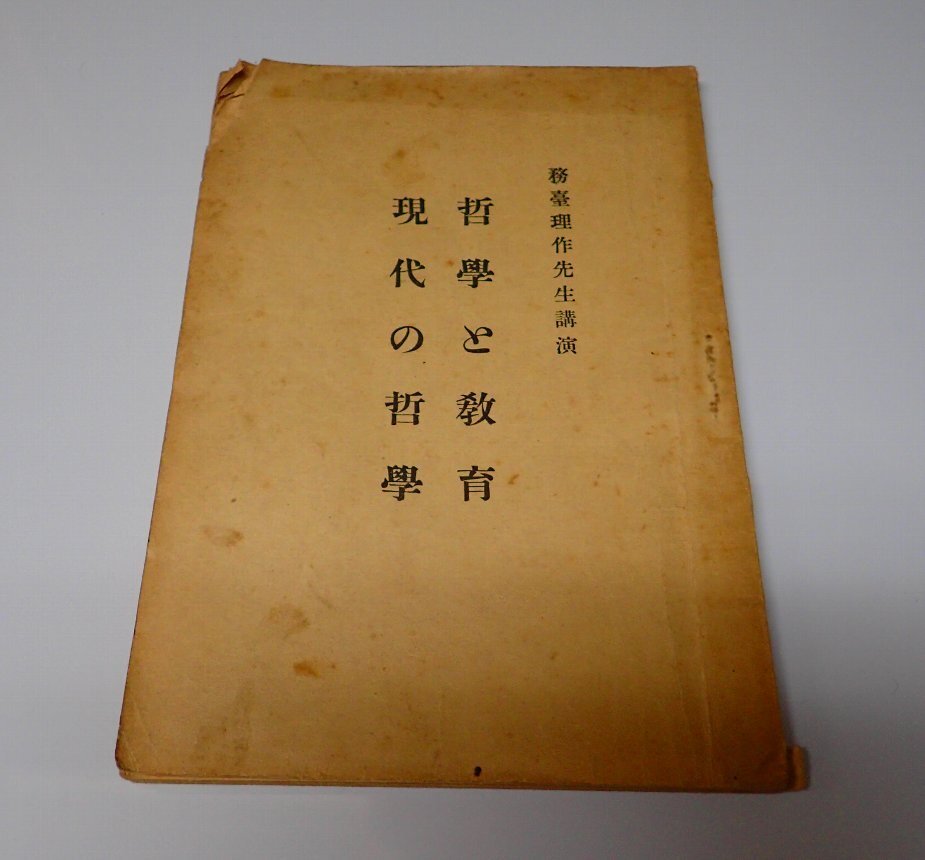 務臺理作先生講演
哲學と敎育
現代の哲學